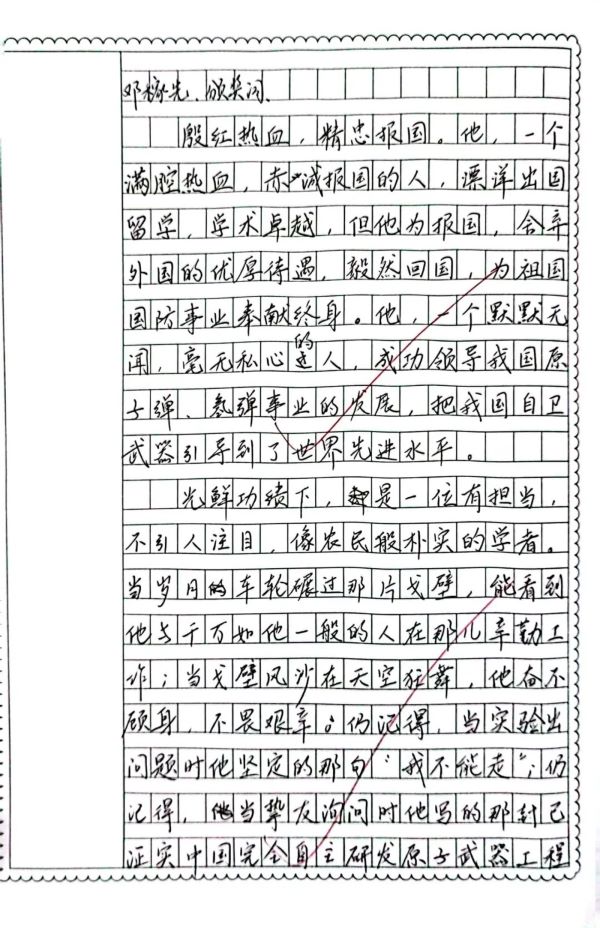 邓稼先、颁奖词、
殷红热血，精忠报国。他，一个
满腔热血，赤诚报国的人，漂洋出国
留学，学术卓越，但他为报国，舍弃
外国的优厚待遇，毅然回国，为祖国
国防事业奉献终身。他，一个默默无
闻，毫无私心的人，成功领导我国原
子弹、氢弹事业的发展，把我国自卫
武器引导到了世界先进水平。
光鲜功绩下，是一位有担当，
不引人注目，像农民般朴实的学者。
当岁月的车轮碾过那片戈壁，能看到
他与千万如他一般的人在那儿辛勤工
作；当戈壁风沙在天空狂舞，他奋不
顾身，不畏艰辛；仍记得，当实验出
问题时他坚定的那句“我不能走”；仍
记得，当挚友询问时他写的那封已
证实中国完全自主研发原子武器工程